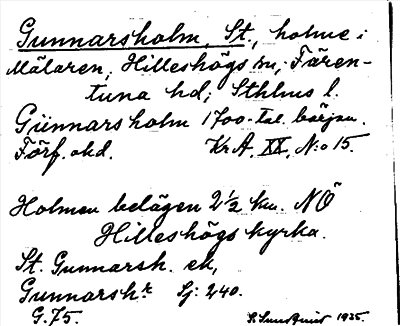 Gunnarsholm, St., holme i
Mälaren, Hilleshögs sn, Fären-
tuna hd, Sthlms l.
Günnarsholm 1700-tal. början.
Förf. okd. Kr A, XX, N:o 15.
Holmen belägen 2 1/2 km. NÖ
Hilleshögs kyrka.
St. Gunnarsh. ek,
Gunnarsh:k Sj: 240.
G. 75. 1935.